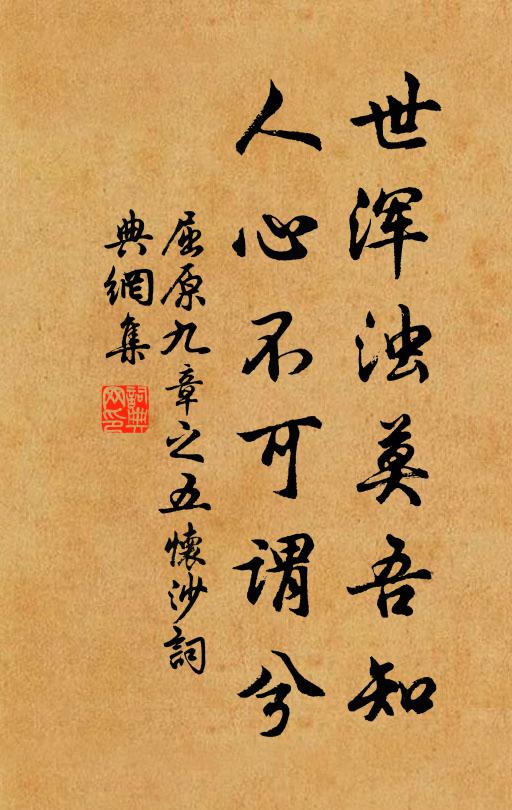 世浑浊莫吾知
人心不可谓兮
屈原九章之五懷沙詞
典網集
詞典
网印